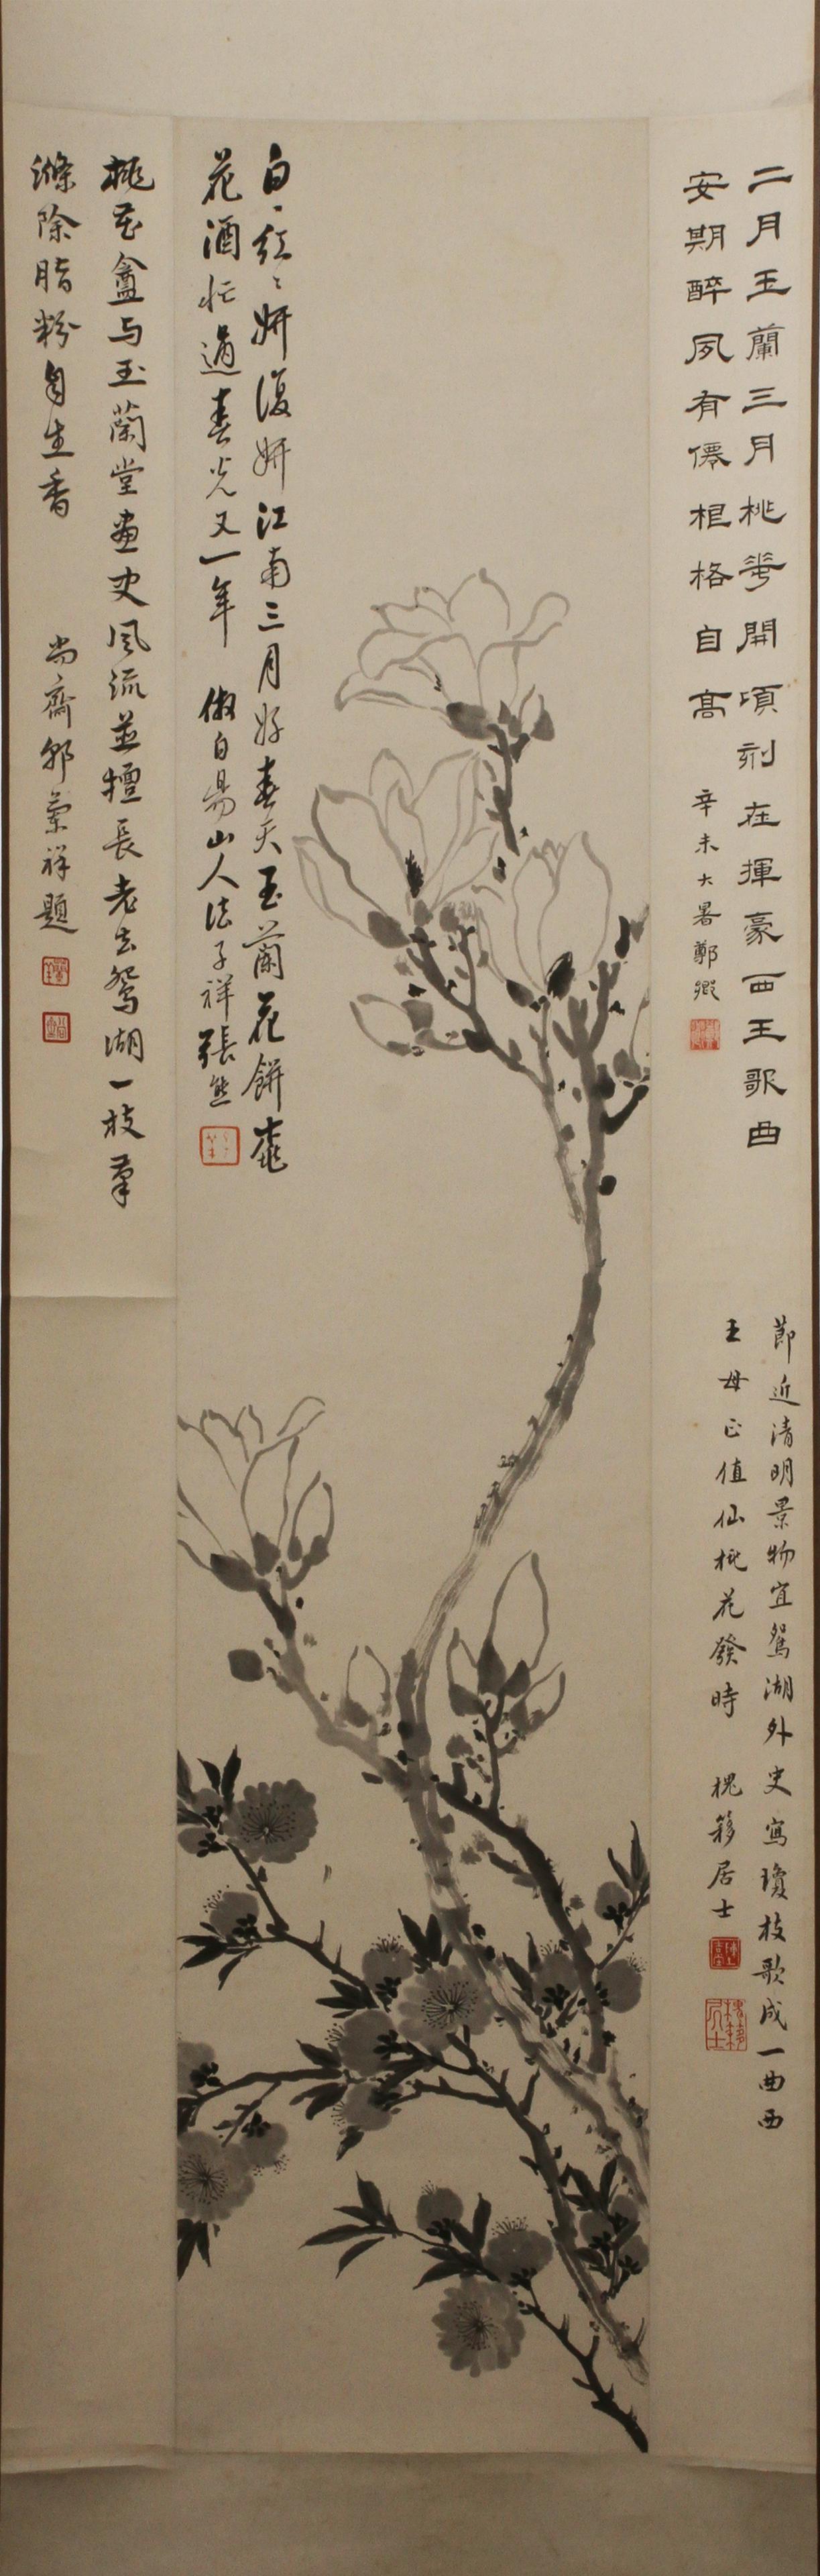 二月玉蘭三月桃華開頃刻在揮豪西王歌曲
安期醉夙有僊根格自高 辛未大暑鄭
節近清明景物宜鴛湖外史寫瓊枝歌成一曲西
王母正值仙桃花發時 槐簃居士
白〻紅〻妍復妍江南三月好春天玉蘭花餅
花酒忙過春光又一年 倣白昜山人法子祥張熊
桃花盦与玉蘭堂畫史風流並擅長老去鴛湖一枝筆
滌除脂粉自生香 尚齋 祥題